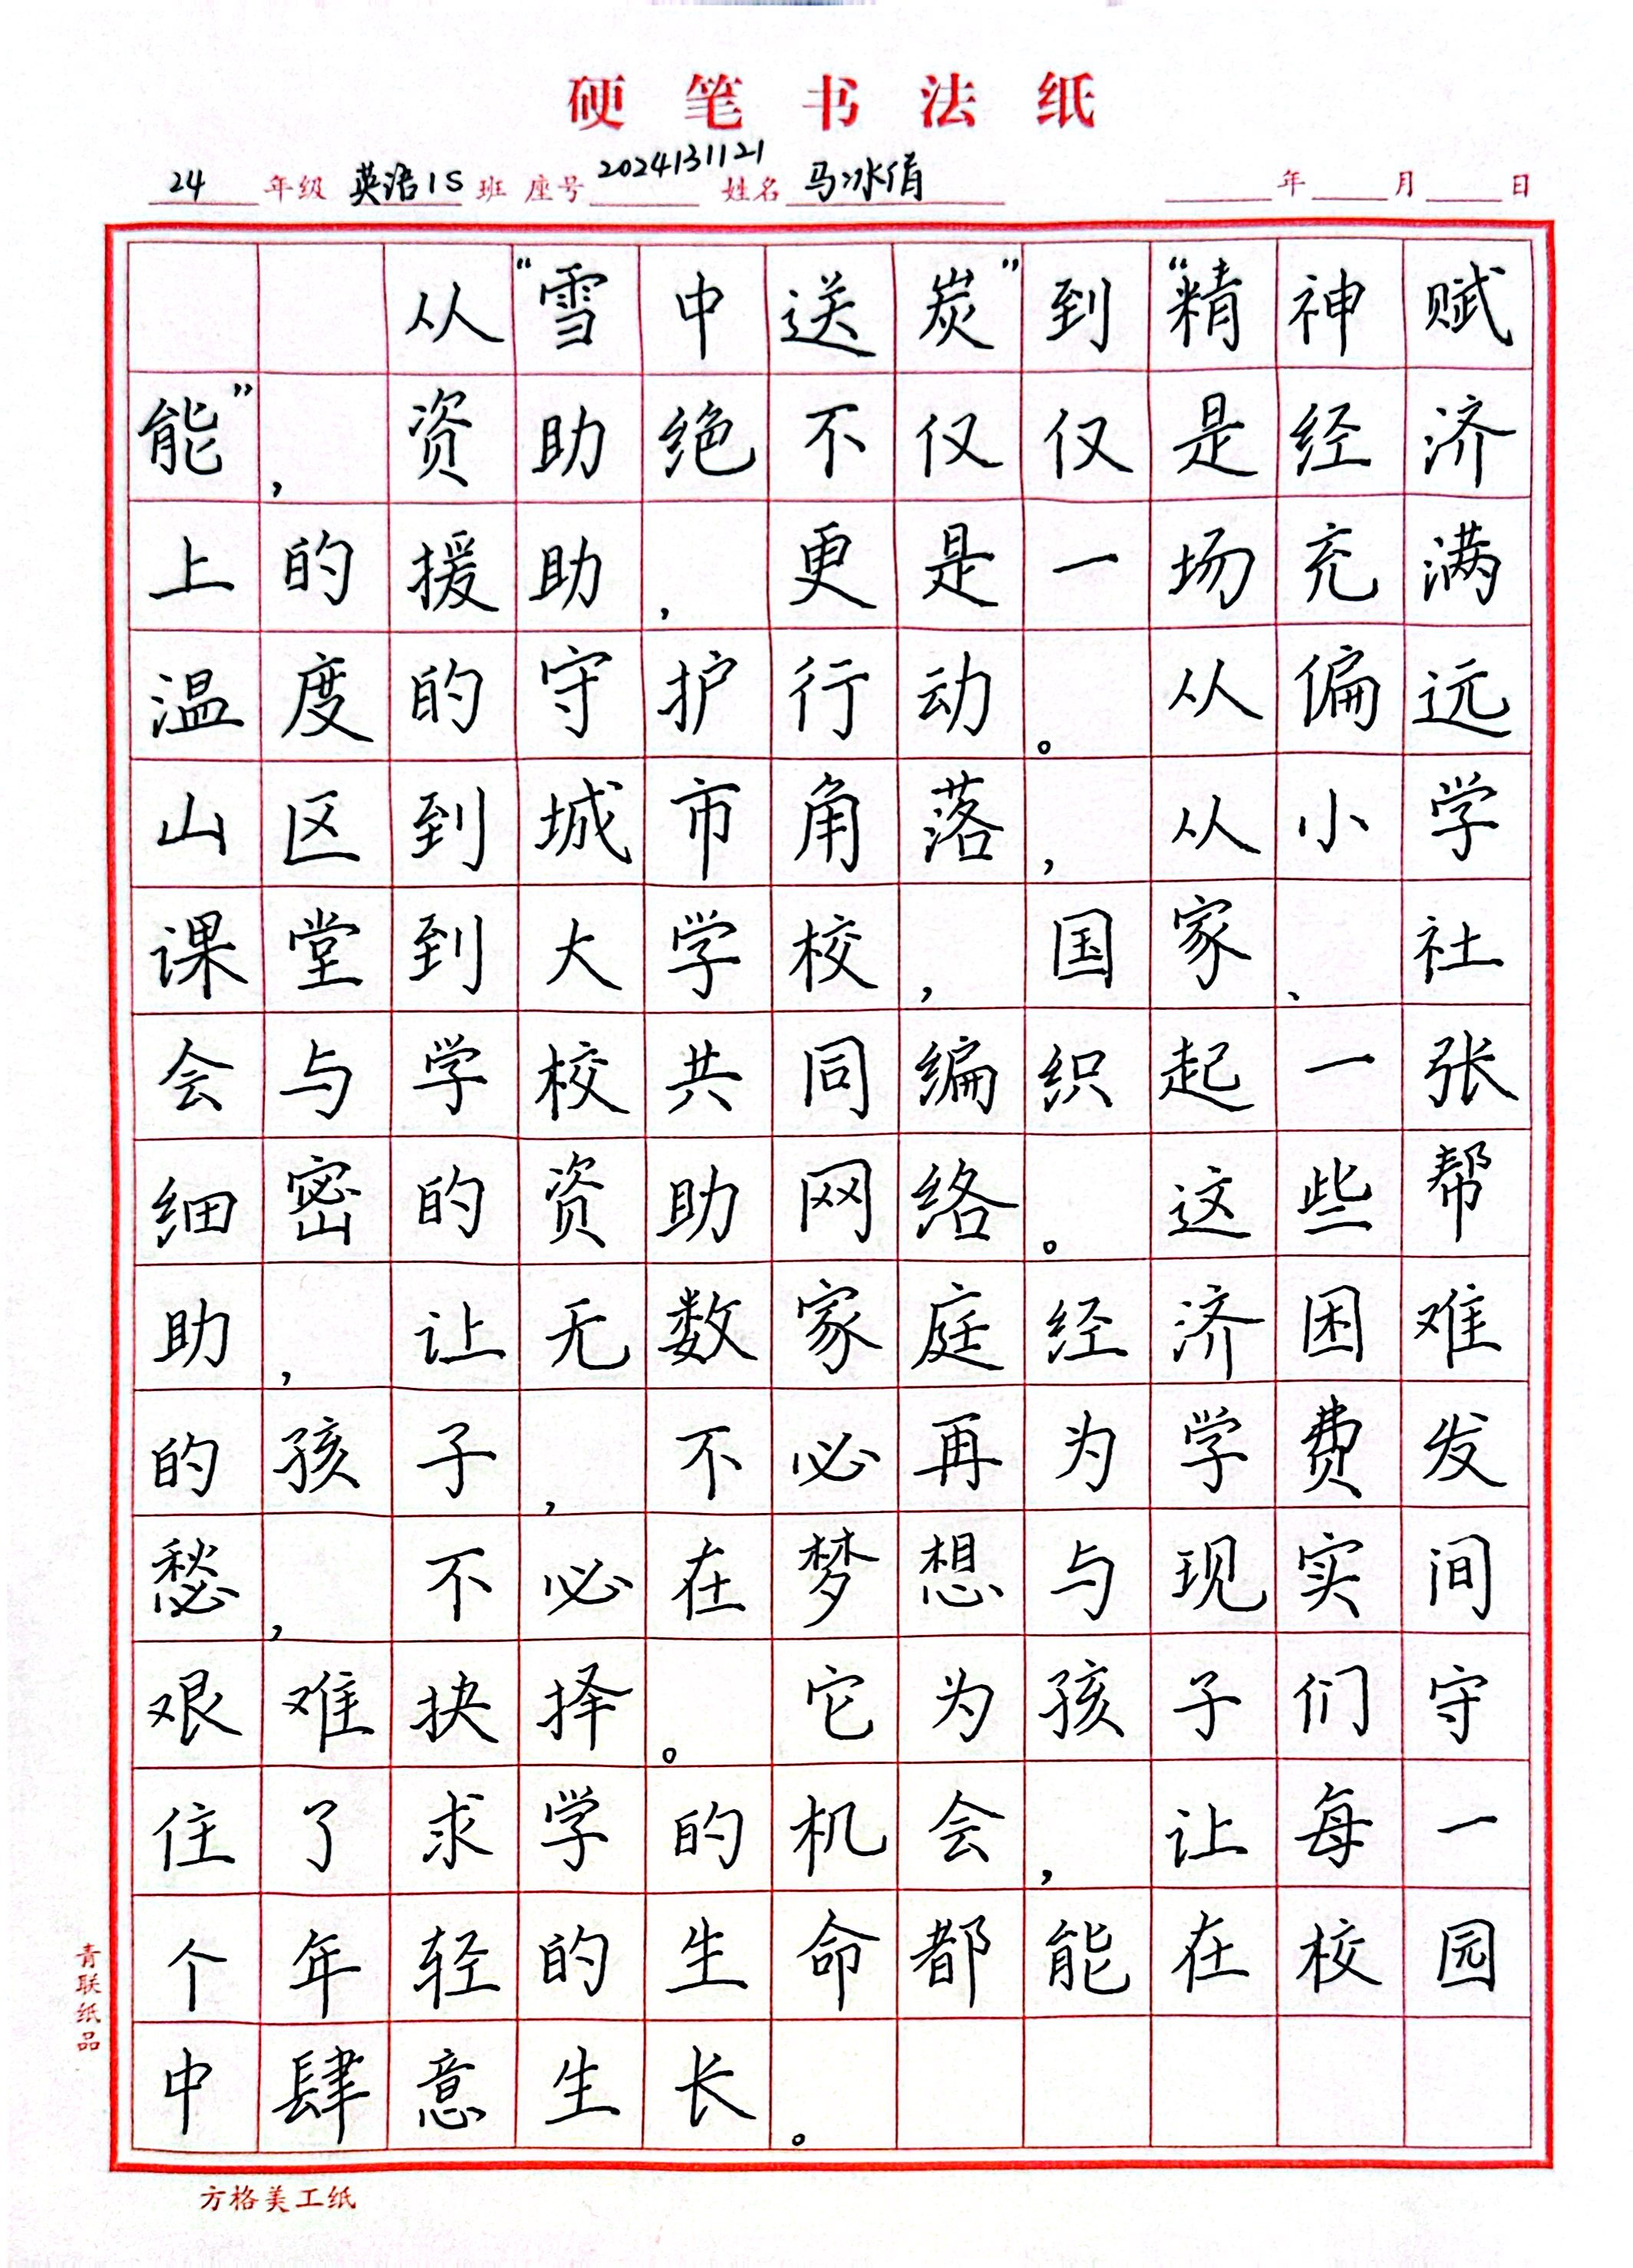 硬笔书法纸
24年级 英语15班 座号2024131121 姓名马冰 年 月 日
从“雪中送炭”到“精神赋
能”，资助绝不仅仅是经济
上的援助，更是一场充满
温度的守护行动。从偏远
山区到城市角落，从小学
课堂到大学校，国家、社
会与学校共同编织起一张
细密的资助网络。这些帮
助，让无数家庭经济困难
的孩子，不必再为学费发
愁，不必在梦想与现实间
艰难抉择。它为孩子们守
住了求学的机会，让每一
个年轻的生命都能在校园
中肆意生长。
青联纸品
方格美工纸